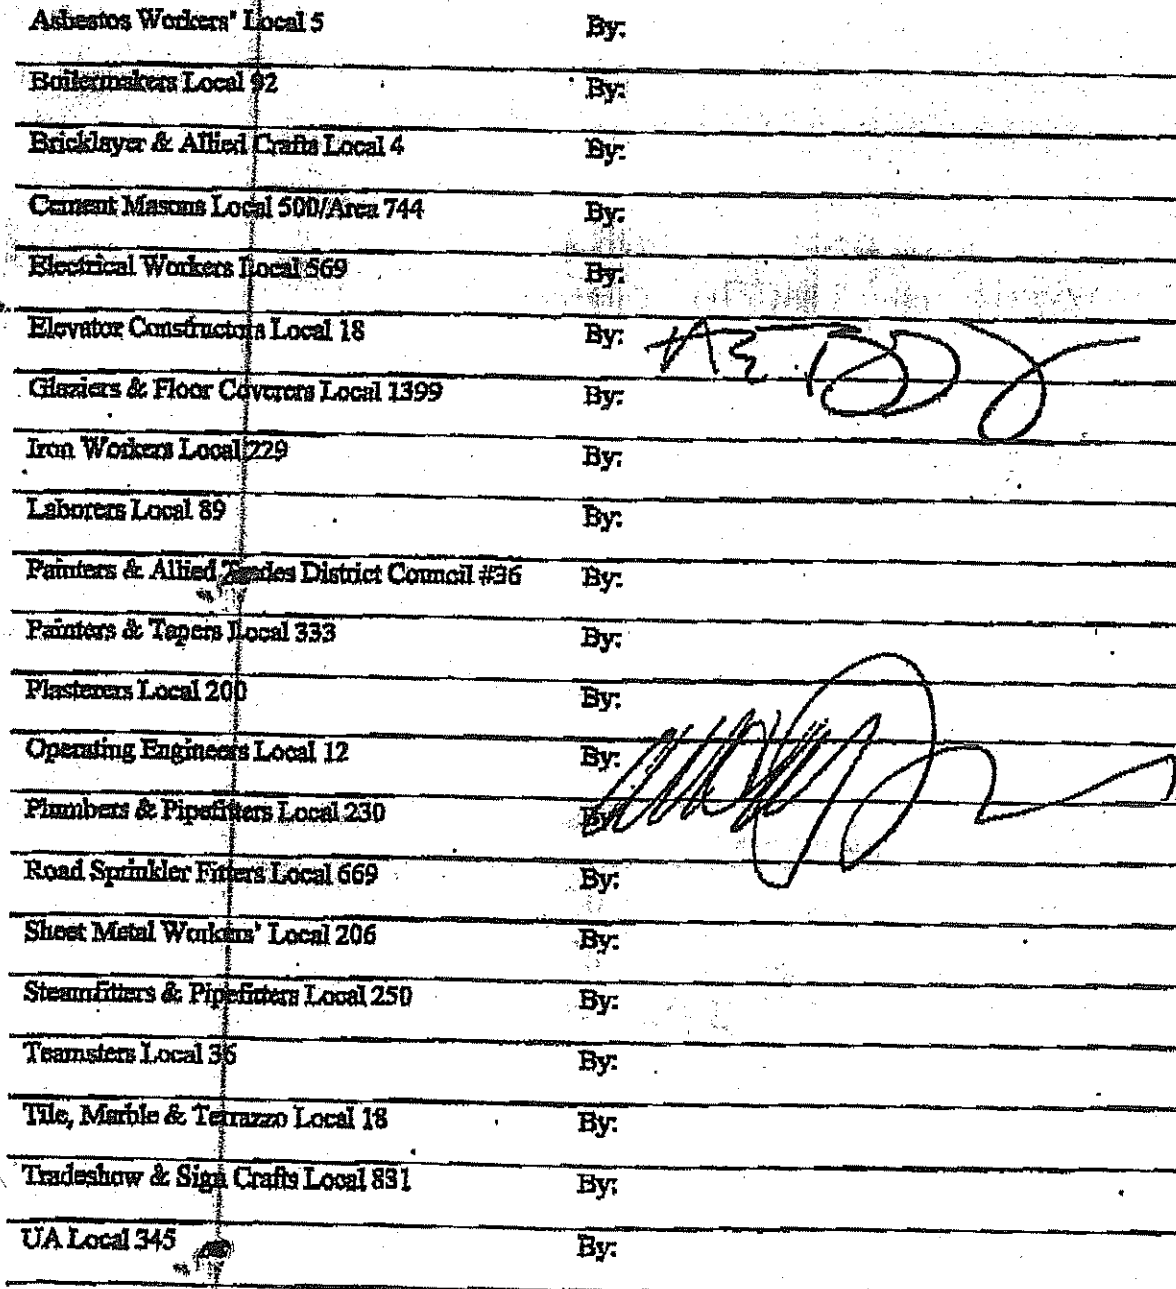 Asbestos Workers' Local 5 By:
Boilermakers Local 92 By:
Bricklayer & Allied Crafts Local 4 By:
Cement Masons Local 500/Area 744 By:
Electrical Workers Local 569 By:
Elevator Constructors Local 18 By:
Glaziers & Floor Coverers Local 1399 By:
Iron Workers Local 229 By:
Laborers Local 89 By:
Painters & Allied Trades District Council #36 By:
Painters & Tapers Local 333 By:
Plasterers Local 200 By:
Operating Engineers Local 12 By:
Plumbers & Pipefitters Local 230 By:
Road Sprinkler Fitters Local 669 By:
Sheet Metal Workers' Local 206 By:
Steamfitters & Pipefitters Local 250 By:
Teamsters Local 36 By:
Tile, Marble & Terrazzo Local 18 By:
Tradeshow & Sign Crafts Local 831 By:
UA Local 345 By: